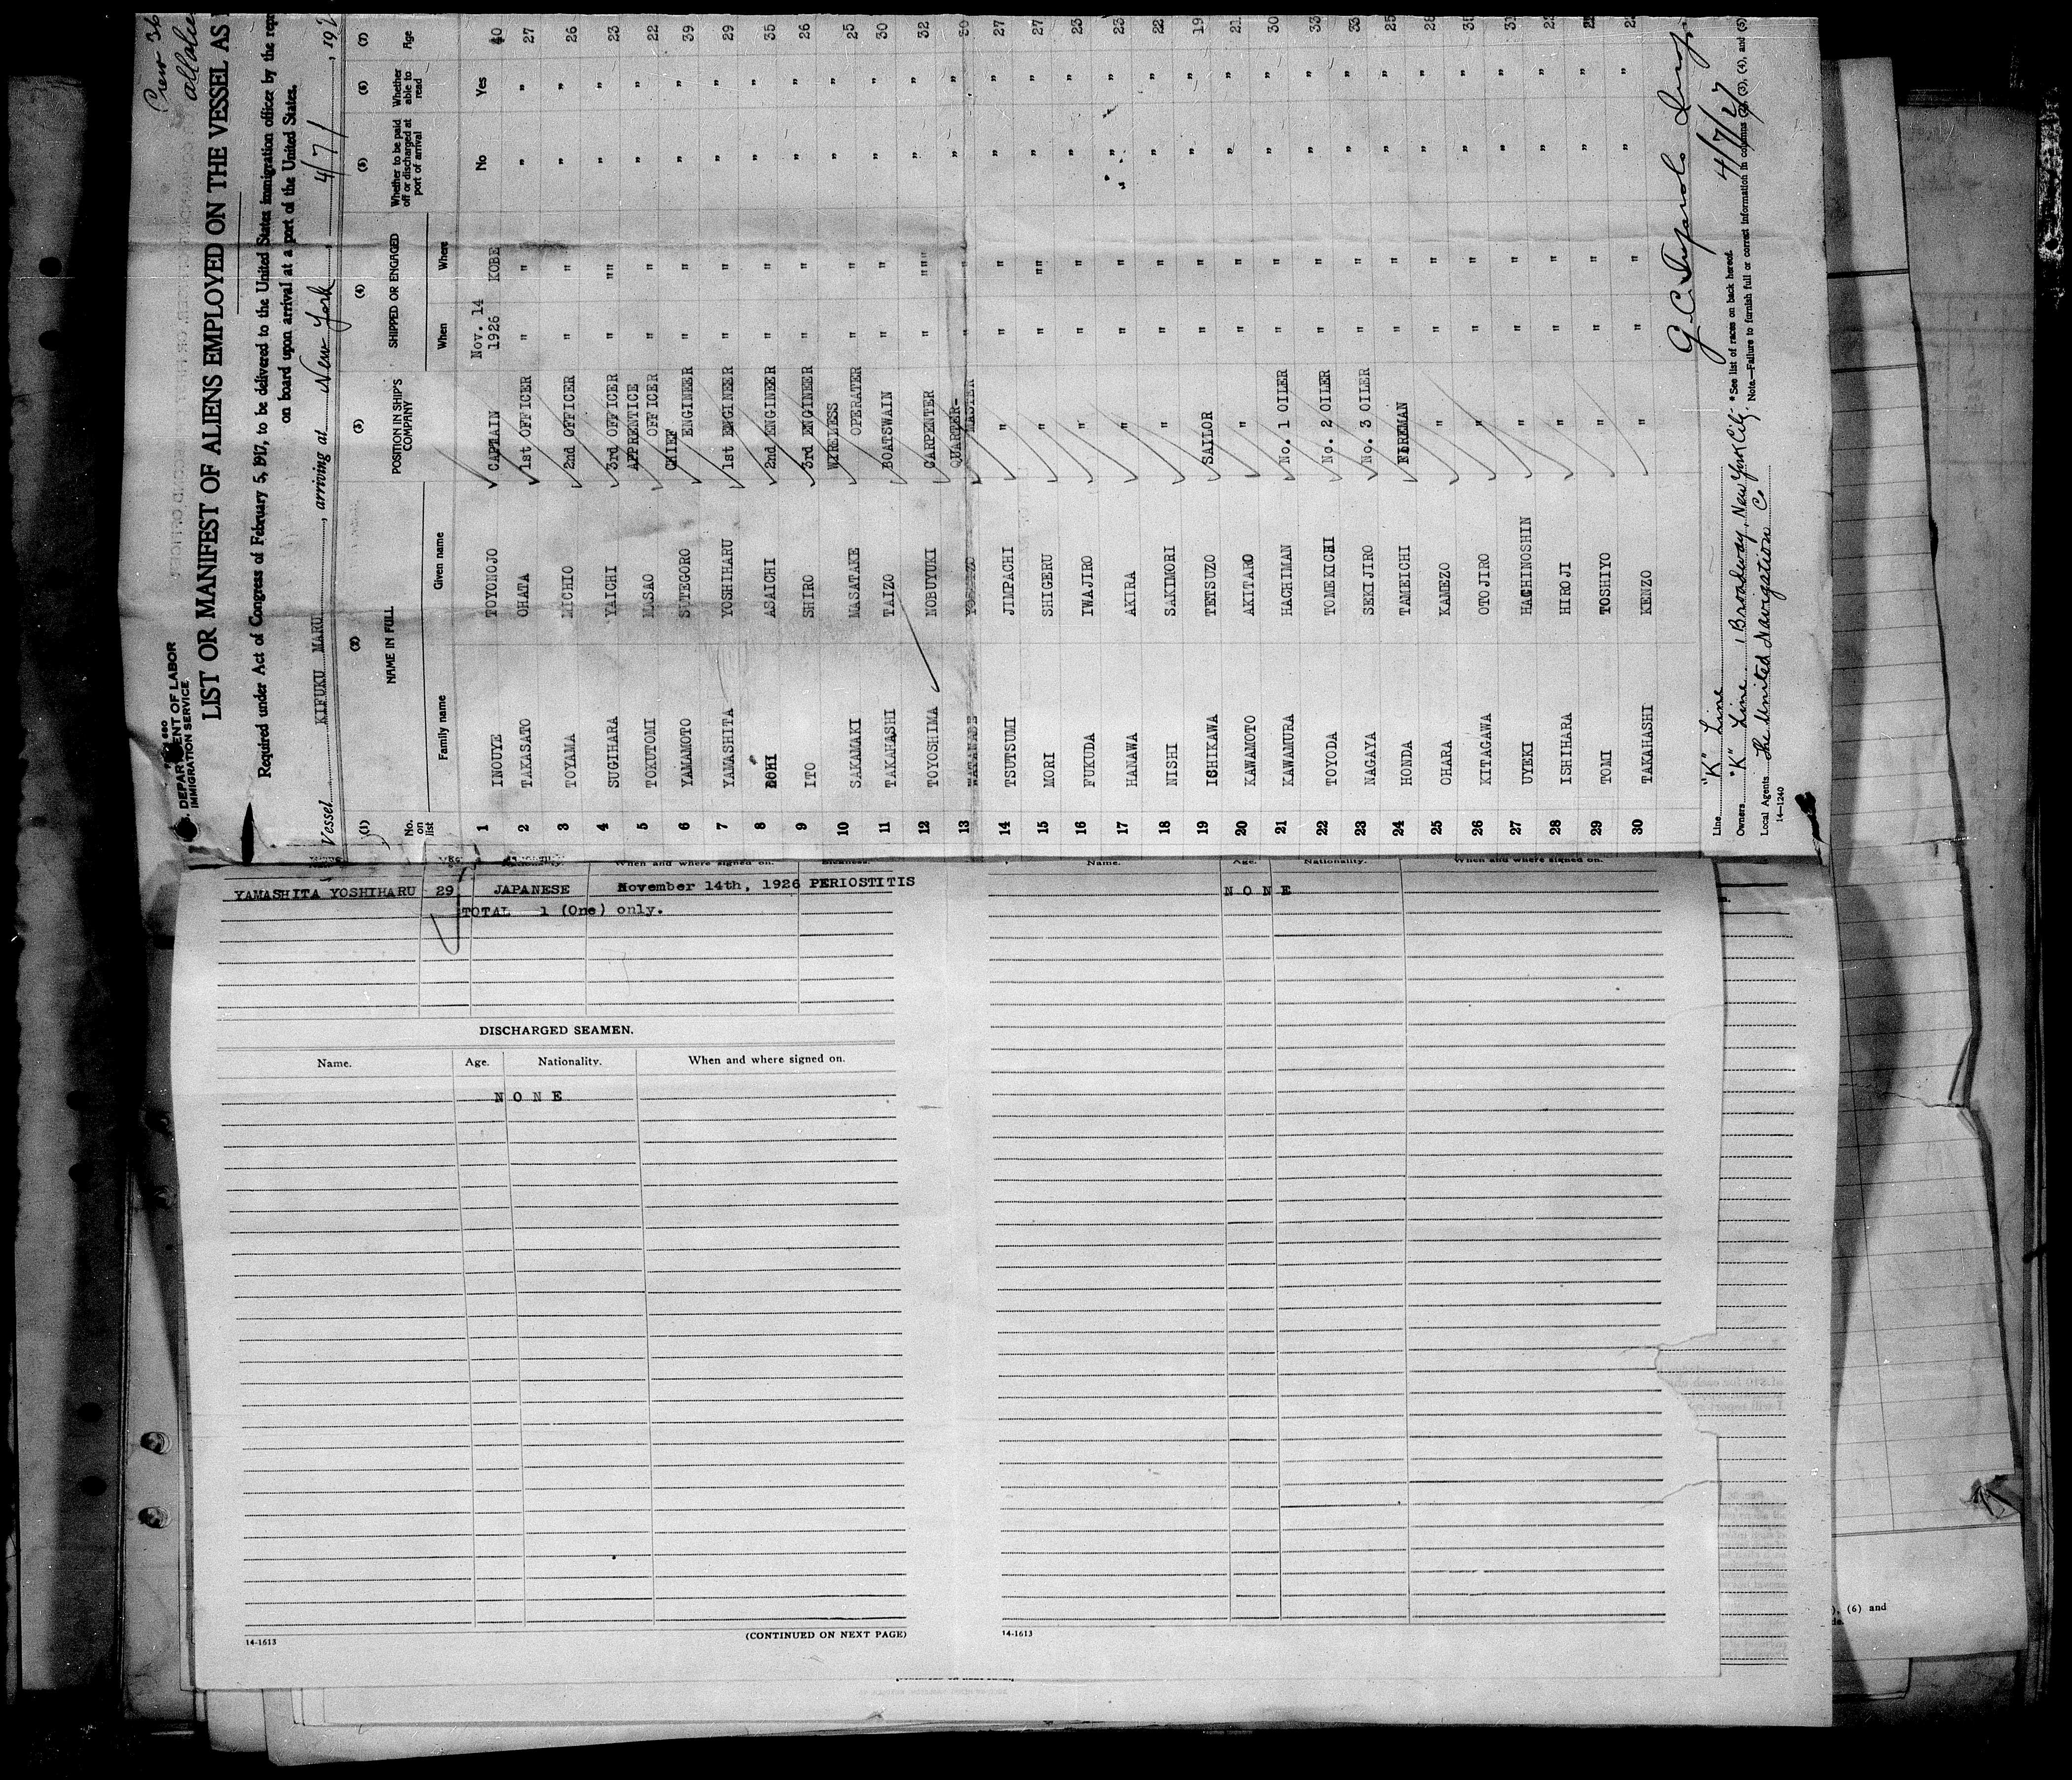 Crew 36
U.S. DEPARTMENT OF LABOR
IMMIGRATION SERVICE
LIST OR MANIFEST OF ALIENS EMPLOYED ON THE VESSEL AS
Required under Act of Congress of February 5, 1917, to be delivered to the United States immigration officer by the
on board upon arrival at a port of the United States.
Vessel KIFUKU MARU, arriving at New York, 4/7/, 192
(1) (2) (3) (4) (5) (6) (7)
No. on list NAME IN FULL POSITION IN SHIP'S COMPANY SHIPPED OR ENGAGED Whether to be paid off or discharged at port of arrival Whether able to read Age
Family name Given name When Where
1 INOUYE TOYONOJO CAPTAIN Nov. 14 1926 KOBE No Yes 40
2 TAKASATO OHATA 1st OFFICER " " " " 27
3 TOYAMA MICHIO 2nd OFFICER " " " " 26
4 SUGIHARA YAICHI 3rd OFFICER " "" " " 23
5 TOKUTOMI MASAO APPRENTICE OFFICER " " " " 22
6 YAMAMOTO SUTEGORO CHIEF ENGINEER " " " " 39
7 YAMASHITA YOSHIHARU 1st ENGINEER " " " " 29
8 DOHI ASAICHI 2nd ENGINEER " " " " 35
9 ITO SHIRO 3rd ENGINEER " " " " 26
10 SAKAMAKI MASATAKE WIRELESS OPERATER " " " " 25
11 TAKAHASHI TAIZO BOATSWAIN " " " " 30
12 TOYOSHIMA NOBUYUKI CARPENTER " """ " " 32
13 WATANABE QUARTER-MASTER " " " " 30
14 TSUTSUMI JIMPACHI " " " " " 27
15 MORI SHIGERU " " "" " " 27
16 FUKUDA IWAJIRO " " " " " 23
17 HANAWA AKIRA " " " " " 23
18 NISHI SAKIMORI " " " " " 22
19 ISHIKAWA TETSUZO SAILOR " " " " 19
20 KAWAMOTO AKITARO " " " " " 21
21 KAWAMURA HACHIMAN No. 1 OILER " " " " 30
22 TOYODA TOMEKICHI No. 2 OILER " " " " 33
23 NAGAYA SEKIJIRO No. 3 OILER " " " " 33
24 HONDA TAMEICHI FIREMAN " " " " 25
25 OHARA KAMEZO " " " " " 28
26 KITAGAWA OTOJIRO " " " " "
27 UYEKI HACHINOSHIN " " " " "
28 ISHIHARA HIROJI " " " " "
29 TOMI TOSHIYO " " " " "
30 TAKAHASHI KENZO " " " " "
4/7/27
Line "K" Line
Owners "K" Line, 1 Broadway, New York City.
Local Agents The United Navigation Co
14-1240
*See list of races on back hereof.
Note.—Failure to furnish full or correct information in columns (2), (3), (4), and (5)
When and where signed on.
YAMASHITA YOSHIHARU 29 JAPANESE November 14th, 1926 PERIOSTITIS
TOTAL 1 (One) only.
DISCHARGED SEAMEN.
Name. Age. Nationality. When and where signed on.
NONE
14-1613
(CONTINUED ON NEXT PAGE)
Name. Age. Nationality. When and where signed on.
NONE
14-1613
, (6) and